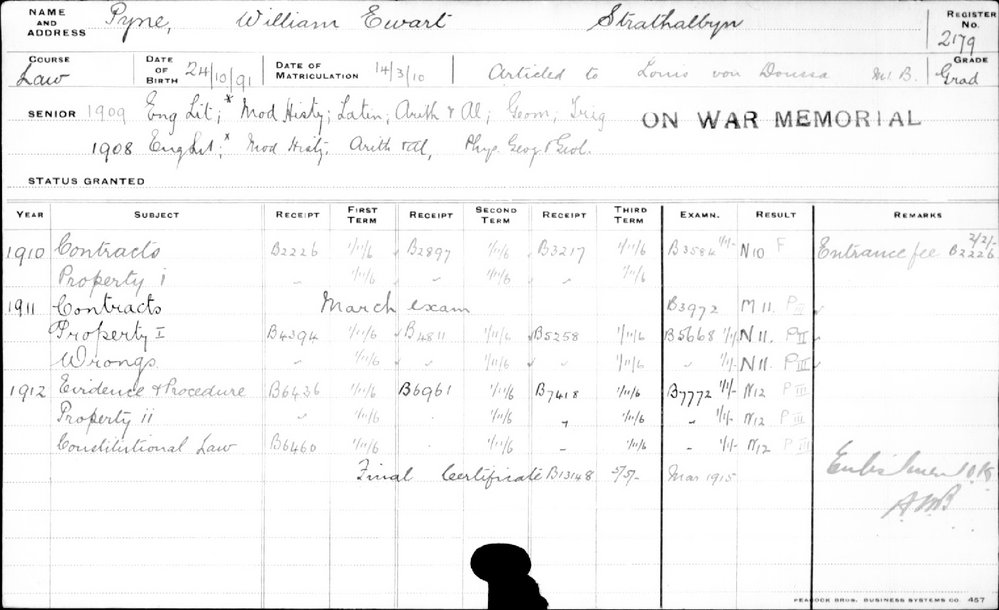 NAME AND ADDRESS Pyne, William Ewart Strathalbyn REGISTER No. 2179
COURSE Law DATE OF BIRTH 24/10/91 DATE OF MATRICULATION 14/3/10 Articled to Louis von Doussa Mt B. GRADE Grad
SENIOR 1909 Eng Lit;* Mod Histy; Latin; Arith & Al; Geom; Trig ON WAR MEMORIAL
1908 Eng Lit;* Mod Histy; Arith & Al, Phys. Geog & Geol.
STATUS GRANTED
YEAR SUBJECT RECEIPT FIRST TERM RECEIPT SECOND TERM RECEIPT THIRD TERM EXAMN. RESULT REMARKS
1910 Contracts B2226 1/11/6 B2897 1/11/6 B3217 1/11/6 B3584 1/1/- N10 F Entrance fee B2226 2/2/-
Property i " 1/11/6 1/11/6 1/11/6
1911 Contracts March exam B3972 M11. PII
Property I B4394 1/11/6 B4811 1/11/6 B5258 1/11/6 B5668 1/1/- N11. PII
Wrongs " 1/11/6 " 1/11/6 " 1/11/6 " 1/1/- N11. PIII
1912 Evidence & Procedure B6436 1/11/6 B6961 1/11/6 B7418 1/11/6 B7772 1/1/- N12 PIII
Property ii " 1/11/6 " 1/11/6 " 1/11/6 " 1/1/- N12 PIII
Constitutional Law B6460 1/11/6 - 1/11/6 - 1/11/6 - 1/1/- N12 PIII
Final Certificate B13148 5/5/- Mar 1915 Enlistment OK
PEACOCK BROS. BUSINESS SYSTEMS CO. 457